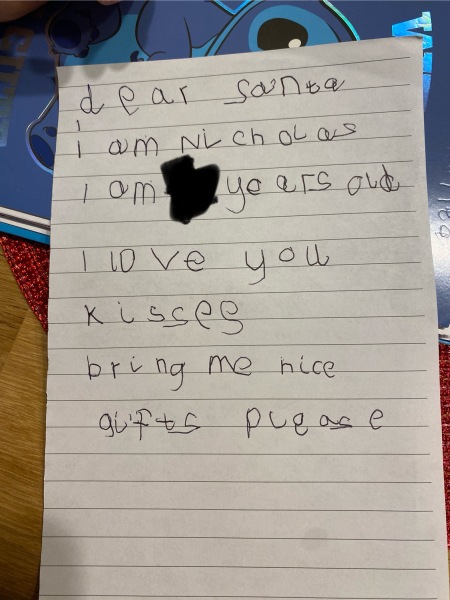 dear santa
i am Nicholas
i am years old
i love you
kisses
bring me nice
gifts please